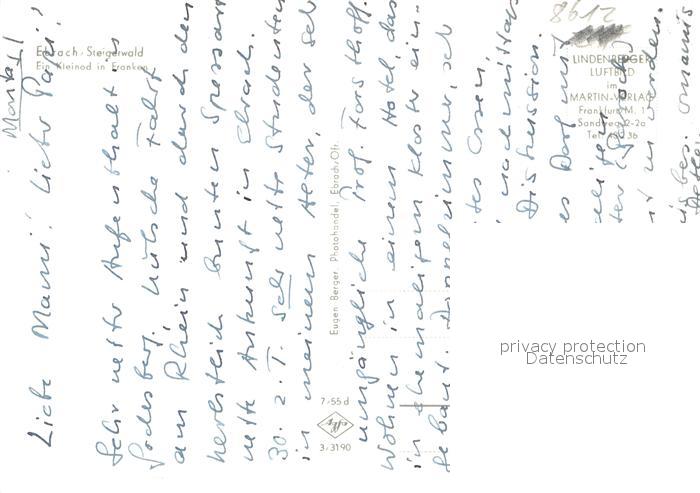 Ebrach/Steigerwald
Ein Kleinod in Franken
Montag!
Liebe Mami! Lieber Papi!
Sehr netter Aufenthalt in
Godesberg. Hübsche Fahrt
am Rhein und durch den
herbstlich bunten Spessart
nette Ankunft in Ebrach.
30 z. T. sehr nette Studenten
in meinem Alter, der seh
umgängliche Prof. Forsthoff.
Wohnen in einem Hotel, das
in ehemaligem Kloster ein-
gebaut. Doppelzimmer, seh
tes Essen,
nachmittag
Diskussion.
es Dorf mit
Eugen Berger, Photohandel, Ebrach/Ofr.
7/55 d
3/3190
8612
LINDENBERGER
LUFTBILD
im
MARTIN-VERLAG
Frankfurt M. 1
Sandweg 2-2a
privacy protection
Datenschutz